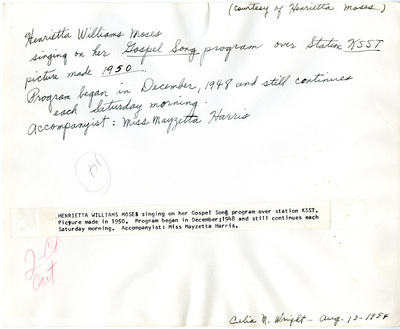 (Courtesy of Henrietta Moses)
Henrietta Williams Moses
singing on her Gospel Song program over Station KSST
picture made 1950.
Program began in December, 1948 and still continues
each Saturday morning.
Accompanyist: Miss Mayzetta Harris
HENRIETTA WILLIAMS MOSES singing on her Gospel Song program over station KSST.
Picture made in 1950. Program began in December;1948 and still continues each
Saturday morning. Accompanyist: Miss Mayzetta Harris.
Cut
Celia M. Wright - Aug. 13-1954